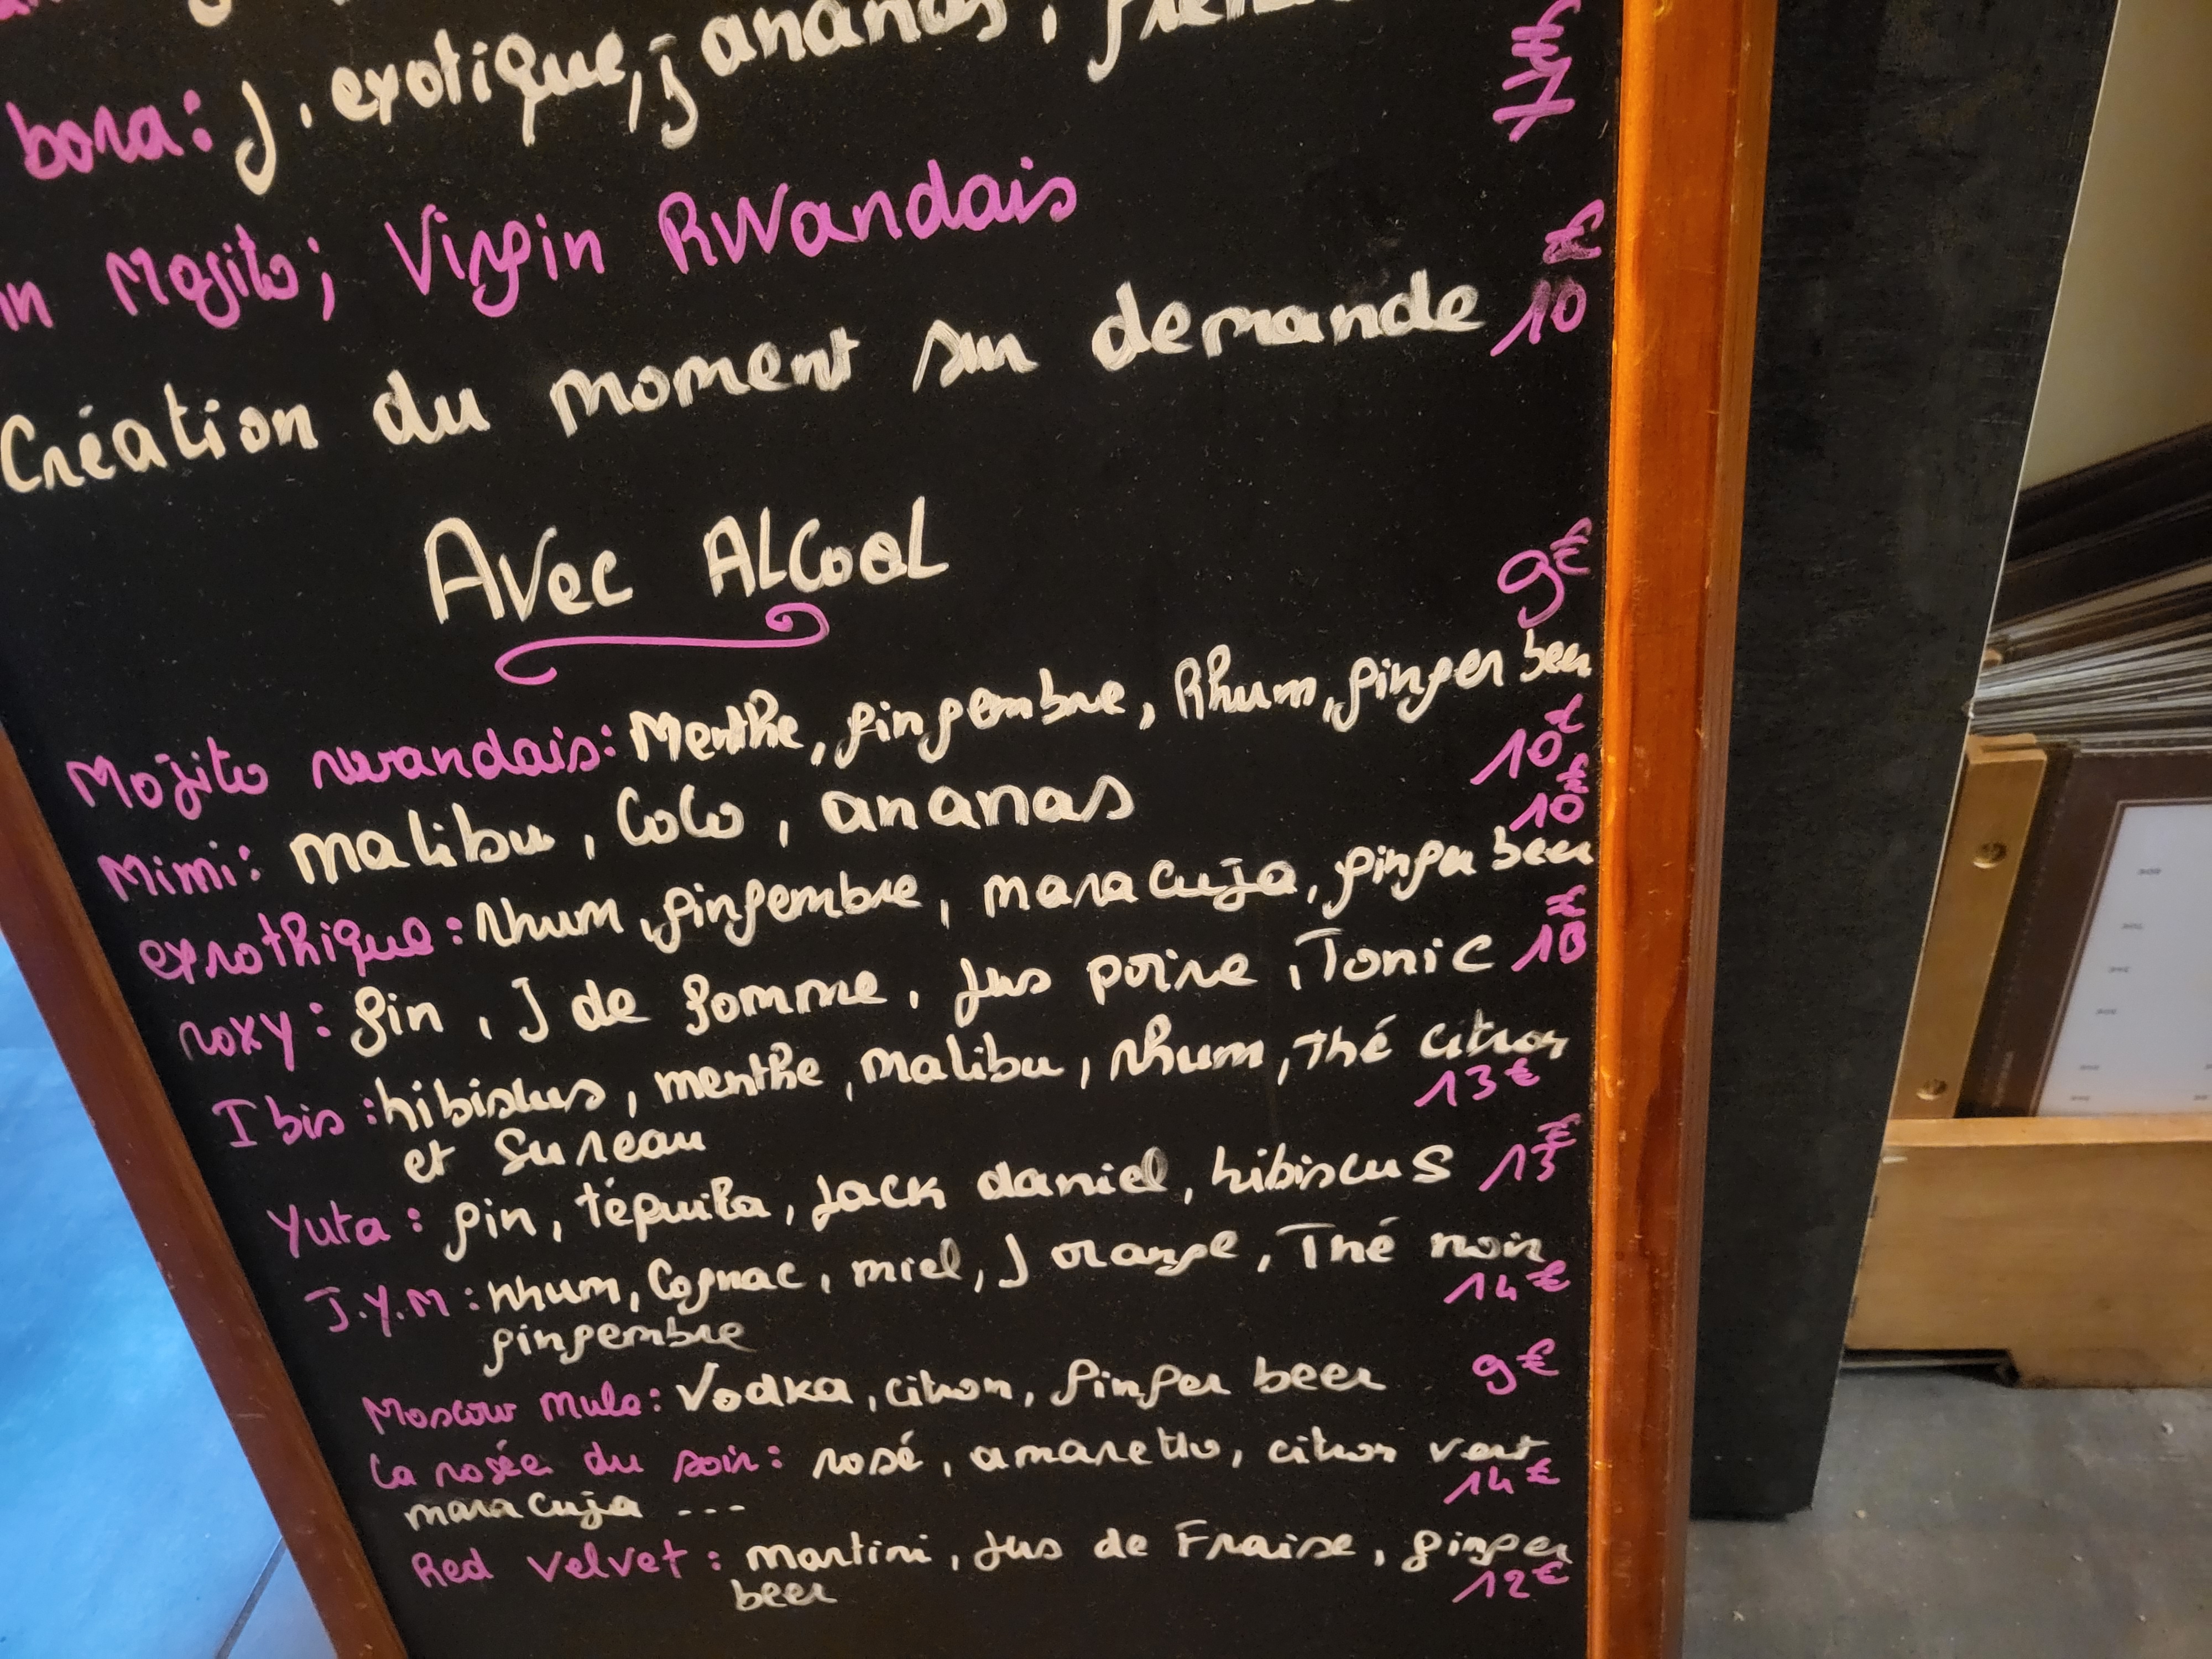 bora: J. exotique, j ananas,
7€
Mojito; Virgin RWandais
Création du moment sur demande 10€
Avec ALCooL
9€
Mojito rwandais: Menthe, gingembre, Rhum, ginger beer
Mimi: malibu, Coco, ananas 10€
10€
exrothique: rhum, gingembre, maracuja, ginger beer
roxy: gin, J de Pomme, jus poire, Tonic 13€
Ibis: hibiscus, menthe, malibu, rhum, Thé citron
et Sureau 13€
Yuta: gin, téquila, jack daniel, hibiscus 13€
J.Y.M: rhum, Cognac, miel, J orange, Thé noir
gingembre 14€
Moscow mule: Vodka, citron, ginger beer 9€
La rosée du soir: rosé, amaretto, citron vert
maracuja --- 14€
Red Velvet: martini, Jus de Fraise, ginger
beer 12€